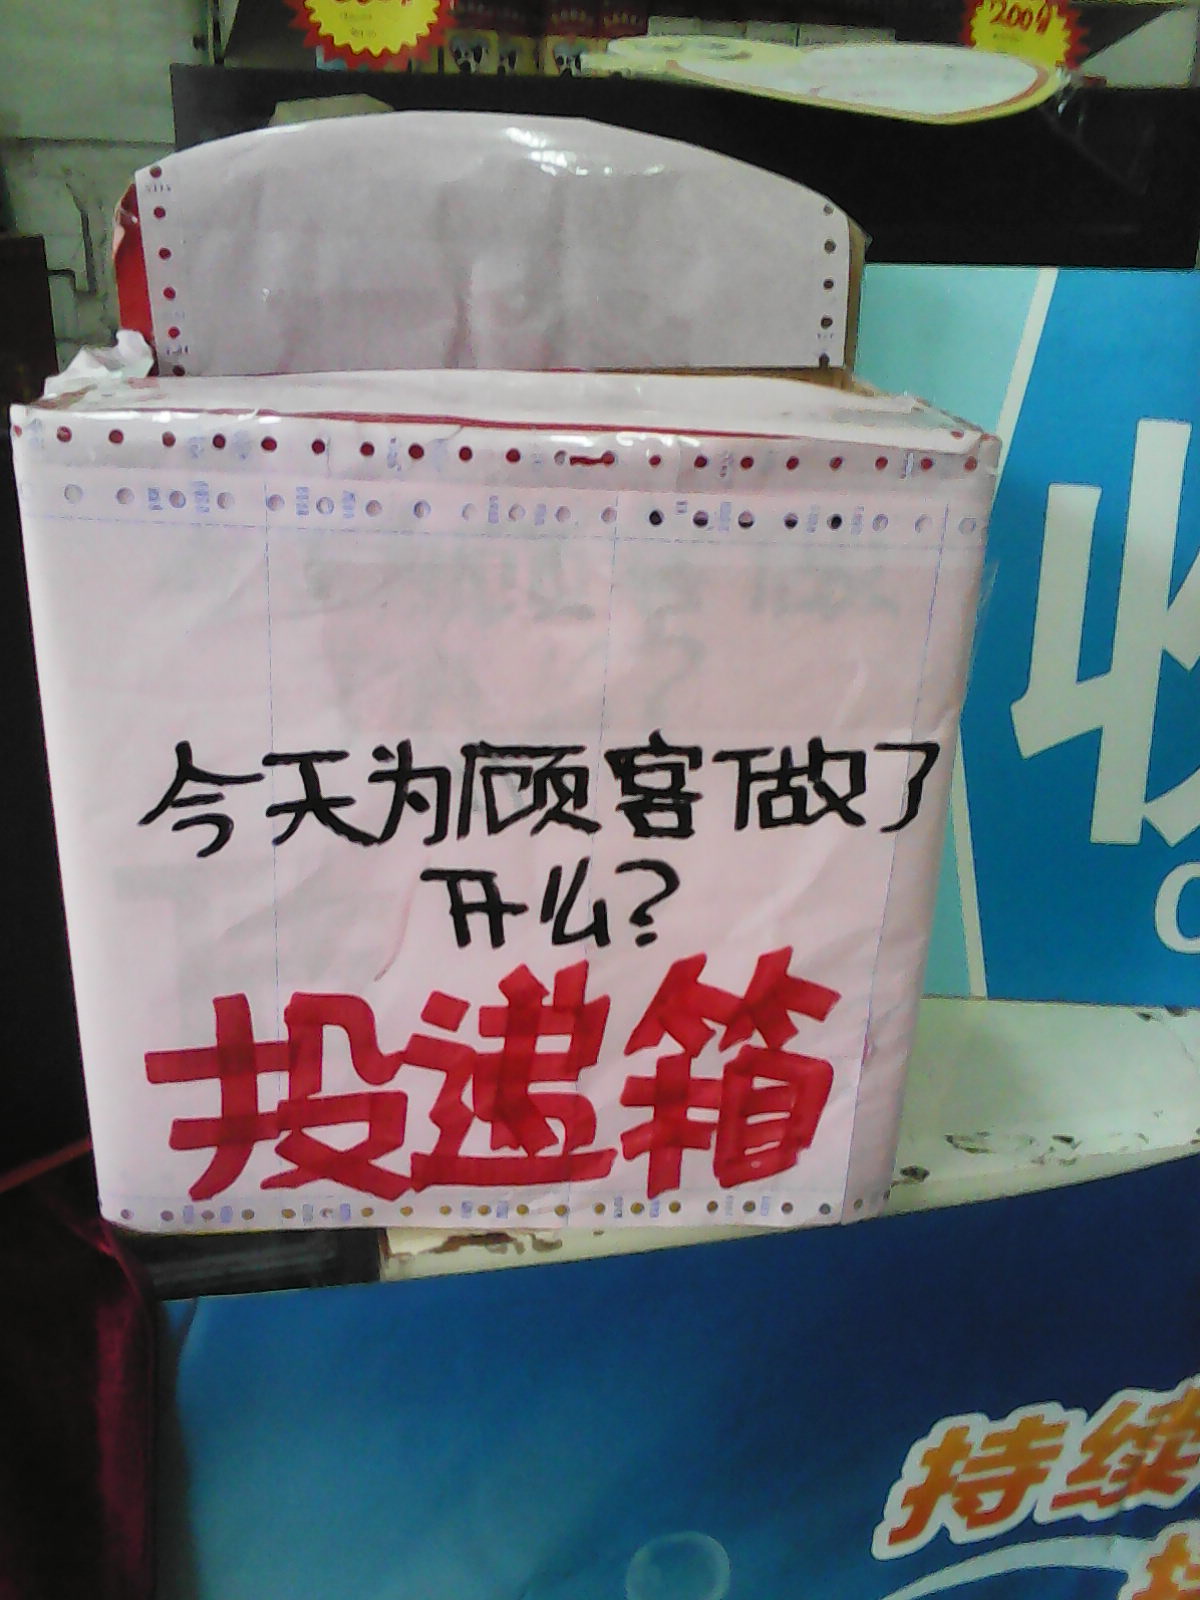 200
今天为顾客做了
什么?
投递箱
收
持续